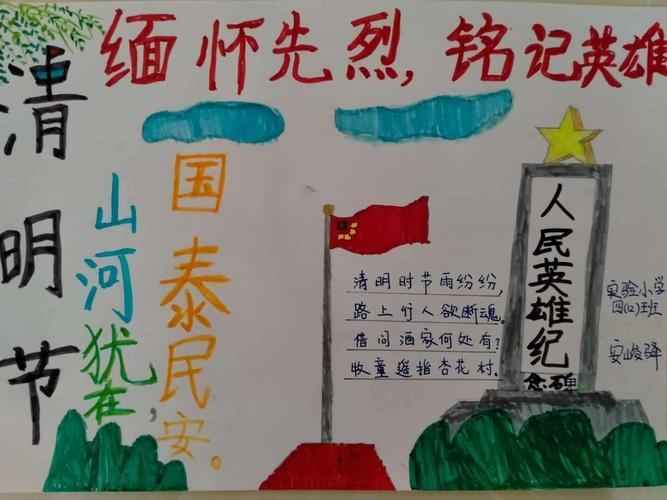 缅怀先烈，铭记英雄
清明节
山河犹在，
国泰民安。
清明时节雨纷纷，
路上行人欲断魂。
借问酒家何处有？
牧童遥指杏花村。
人民英雄纪念碑
实验小学
四(2)班
安峻驿